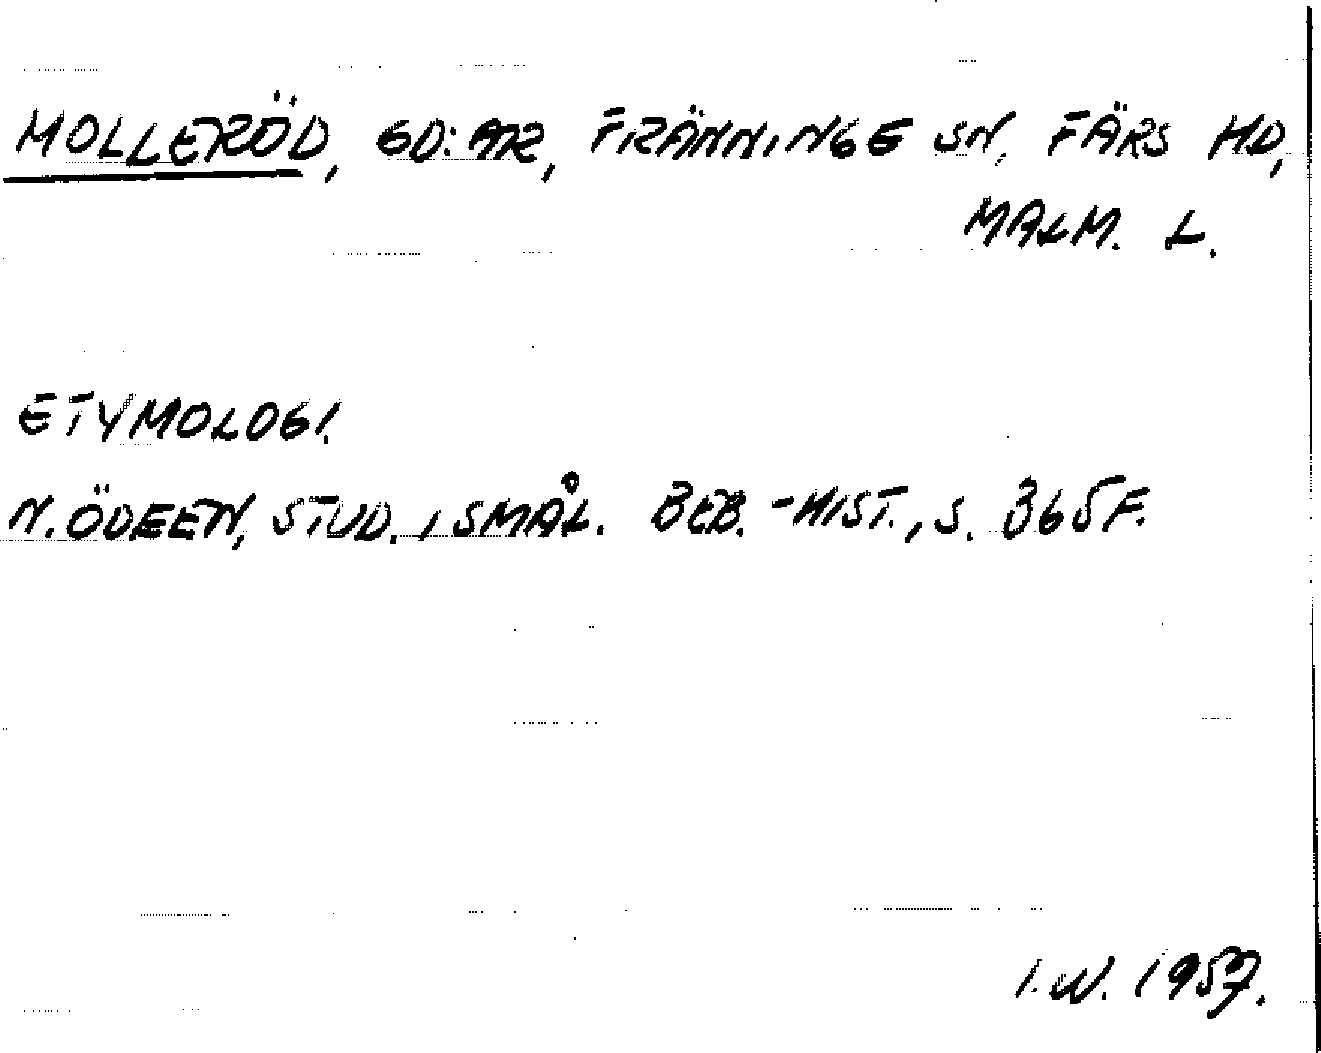 MOLLERÖD, GD:AR, FRÄNNINGE SN, FÄRS HD,
MALM. L.
ETYMOLOGI.
N. ÖDEEN, STUD. I SMÅL. BEB.-HIST., S. 365 F.
I. W. 1957.